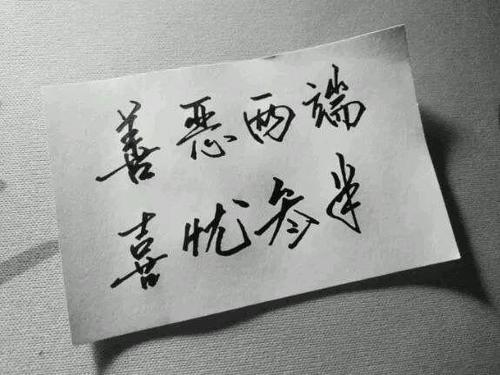 善恶两端
喜忧参半